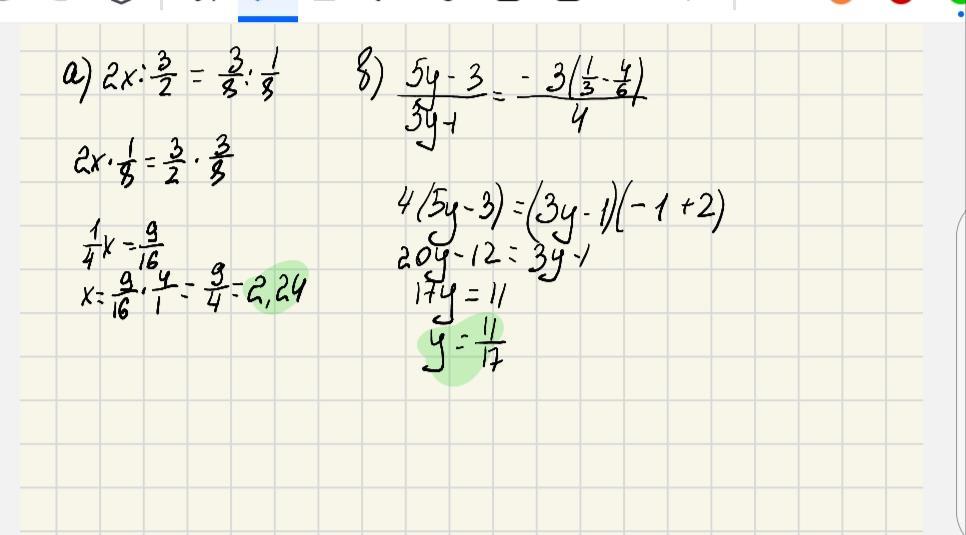 а) 2x : 3/2 = 3/8 : 1/8
2x · 1/8 = 3/2 · 3/8
1/4 x = 9/16
x = 9/16 · 4/1 = 9/4 = 2,24
в) (5y - 3)/(3y - 1) = (- 3(1/3 - 4/6))/4
4(5y - 3) = (3y - 1)(- 1 + 2)
20y - 12 = 3y - 1
17y = 11
y = 11/17